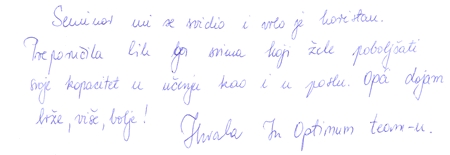 Seminar mi se svidio i vrlo je koristan.
Preporučila bih ga svima koji žele poboljšati
svoje kapacitet u učenju kao i u poslu. Opći dojam
brže, više, bolje! Hvala In Optimum team-u.